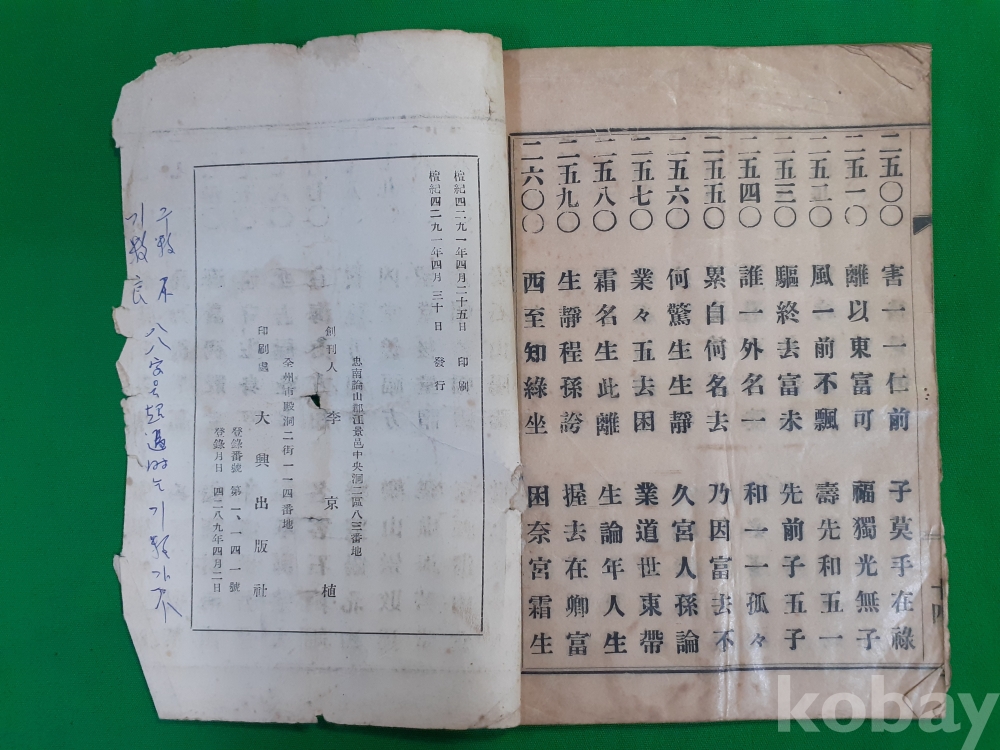 二五〇〇 害一一仁前 子莫乎在祿
二五一〇 離以東富可 福獨光無子
二五二〇 風一前不飄 壽先和五一
二五三〇 驅終去富未 先前子五子
二五四〇 誰一外名一 和一一孤々
二五五〇 累自何名去 乃因富去不
二五六〇 何驚生生靜 久宮人孫論
二五七〇 業々五去困 業道世東帶
二五八〇 霜名生此離 生論年人生
二五九〇 生靜程孫誇 握去在卿富
二六〇〇 西至知綠坐 困奈宮霜生
檀紀四二九一年四月二十五日 印刷
檀紀四二九一年四月三十日 發行
忠南論山郡江景邑中央洞二區八三番地
創刊人 李京植
全州市殿洞二街一一四番地
印刷處 大興出版社
登錄番號 第一、一四一號
登錄月日 四二八九年四月二日
kobay